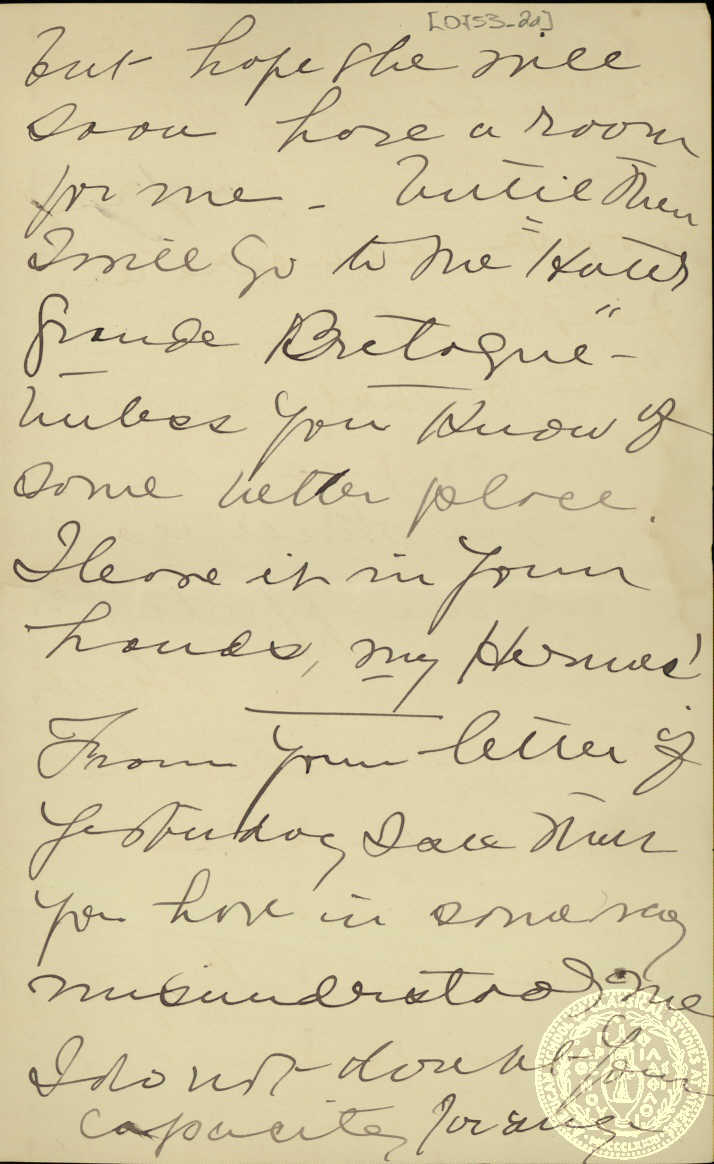 [0753-2a]
but hope she will
soon have a room
for me - Until then
I will go to the "Hotel
Grande Bretagne" -
Unless you know of
some better place.
I leave it in your
hands, my Hermes!
From your letter of
yesterday I see that
you have in some way
misunderstood me
I do not doubt your
capacity for any